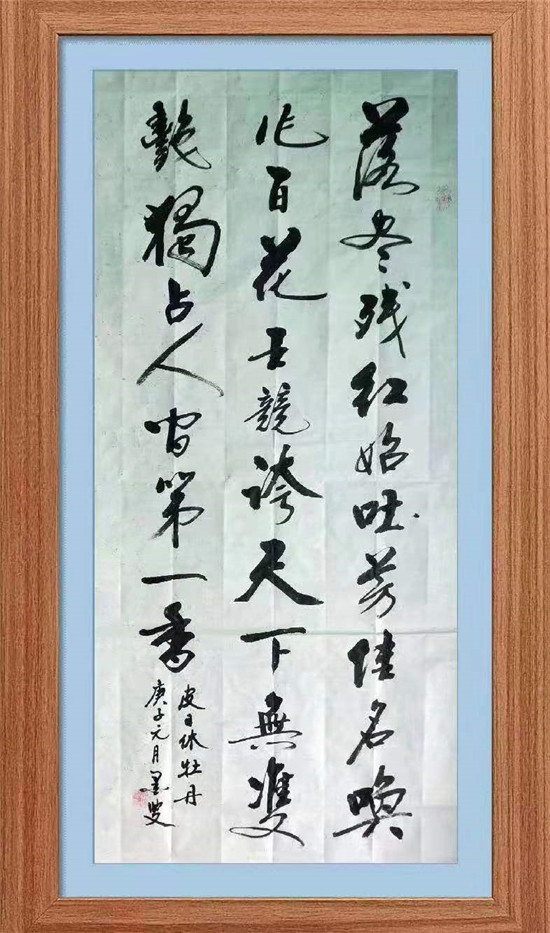 落尽残红始吐芳佳名唤
作百花王競誇天下無雙
艷獨占人间第一香
皮日休牡丹
庚子元月墨叟